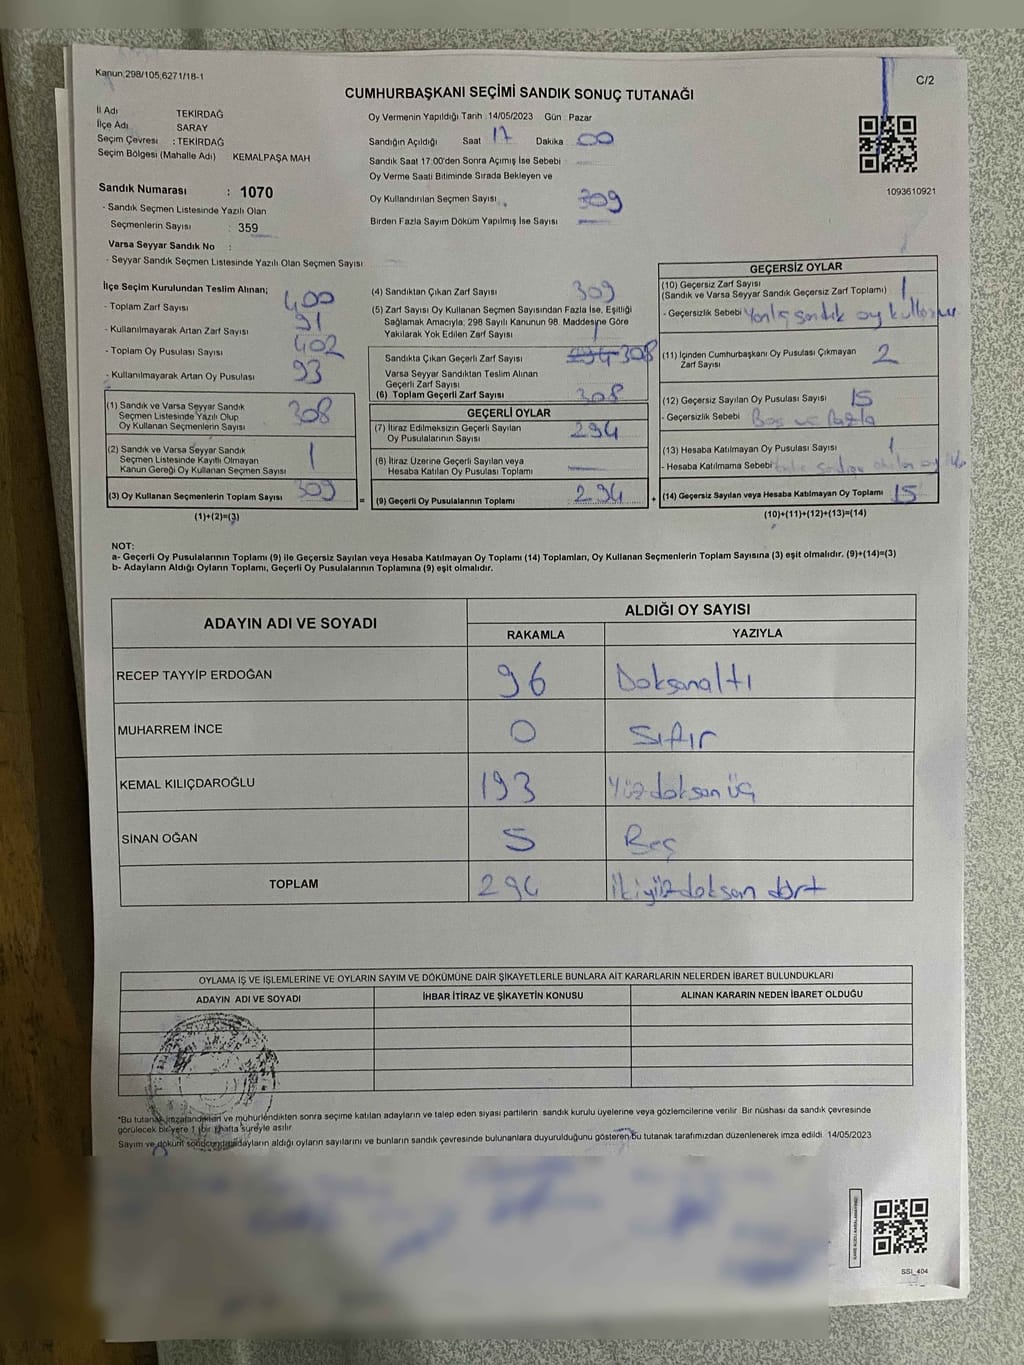 Kanun,298/105,6271/18-1
C/2
CUMHURBAŞKANI SEÇİMİ SANDIK SONUÇ TUTANAĞI
İl Adı TEKİRDAĞ
İlçe Adı SARAY
Seçim Çevresi : TEKİRDAĞ
Seçim Bölgesi (Mahalle Adı) KEMALPAŞA MAH
Sandık Numarası : 1070
- Sandık Seçmen Listesinde Yazılı Olan
Seçmenlerin Sayısı : 359
Varsa Seyyar Sandık No :
- Seyyar Sandık Seçmen Listesinde Yazılı Olan Seçmen Sayısı
Oy Vermenin Yapıldığı Tarih 14/05/2023 Gün Pazar
Sandığın Açıldığı Saat 17 Dakika 00
Sandık Saat 17:00'den Sonra Açımış İse Sebebi
Oy Verme Saati Bitiminde Sırada Bekleyen ve
Oy Kullandırılan Seçmen Sayısı 309
Birden Fazla Sayım Döküm Yapılmış İse Sayısı
1093610921
İlçe Seçim Kurulundan Teslim Alınan;
- Toplam Zarf Sayısı 400
- Kullanılmayarak Artan Zarf Sayısı 91
- Toplam Oy Pusulası Sayısı 402
- Kullanılmayarak Artan Oy Pusulası 93
(1) Sandık ve Varsa Seyyar Sandık
Seçmen Listesinde Yazılı Olup
Oy Kullanan Seçmenlerin Sayısı 308
(2) Sandık ve Varsa Seyyar Sandık
Seçmen Listesinde Kayıtlı Olmayan
Kanun Gereği Oy Kullanan Seçmen Sayısı 1
(3) Oy Kullanan Seçmenlerin Toplam Sayısı 309
(1)+(2)=(3)
=
(4) Sandıktan Çıkan Zarf Sayısı 309
(5) Zarf Sayısı Oy Kullanan Seçmen Sayısından Fazla İse, Eşitliği
Sağlamak Amacıyla; 298 Sayılı Kanunun 98. Maddesine Göre
Yakılarak Yok Edilen Zarf Sayısı
Sandıkta Çıkan Geçerli Zarf Sayısı 294 308
Varsa Seyyar Sandıktan Teslim Alınan
Geçerli Zarf Sayısı
(6) Toplam Geçerli Zarf Sayısı 308
GEÇERLİ OYLAR
(7) İtiraz Edilmeksizin Geçerli Sayılan
Oy Pusulalarının Sayısı 294
(8) İtiraz Üzerine Geçerli Sayılan veya
Hesaba Katılan Oy Pusulası Toplamı
(9) Geçerli Oy Pusulalarının Toplamı 294
+
GEÇERSİZ OYLAR
(10) Geçersiz Zarf Sayısı
(Sandık ve Varsa Seyyar Sandık Geçersiz Zarf Toplamı) 1
- Geçersizlik Sebebi Yanlış sandık oy
(11) İçinden Cumhurbaşkanı Oy Pusulası Çıkmayan
Zarf Sayısı 2
(12) Geçersiz Sayılan Oy Pusulası Sayısı 15
- Geçersizlik Sebebi Boş ve fazla
(13) Hesaba Katılmayan Oy Pusulası Sayısı 1
- Hesaba Katılmama Sebebi
(14) Geçersiz Sayılan veya Hesaba Katılmayan Oy Toplamı 15
(10)+(11)+(12)+(13)=(14)
NOT:
a- Geçerli Oy Pusulalarının Toplamı (9) ile Geçersiz Sayılan veya Hesaba Katılmayan Oy Toplamı (14) Toplamları, Oy Kullanan Seçmenlerin Toplam Sayısına (3) eşit olmalıdır. (9)+(14)=(3)
b- Adayların Aldığı Oyların Toplamı, Geçerli Oy Pusulalarının Toplamına (9) eşit olmalıdır.
ADAYIN ADI VE SOYADI
ALDIĞI OY SAYISI
RAKAMLA YAZIYLA
RECEP TAYYİP ERDOĞAN 96 Doksanaltı
MUHARREM İNCE 0 Sıfır
KEMAL KILIÇDAROĞLU 193 Yüzdoksanüç
SİNAN OĞAN 5 Beş
TOPLAM 294 ikiyüzdoksan dört
OYLAMA İŞ VE İŞLEMLERİNE VE OYLARIN SAYIM VE DÖKÜMÜNE DAİR ŞİKAYETLERLE BUNLARA AİT KARARLARIN NELERDEN İBARET BULUNDUKLARI
ADAYIN ADI VE SOYADI İHBAR İTİRAZ VE ŞİKAYETİN KONUSU ALINAN KARARIN NEDEN İBARET OLDUĞU
*Bu tutanak imzalandıktan ve mühürlendikten sonra seçime katılan adayların ve talep eden siyasi partilerin sandık kurulu üyelerine veya gözlemcilerine verilir. Bir nüshası da sandık çevresinde
görülecek bir yere 1 (bir) hafta süreyle asılır.
Sayım ve döküm sonucunda adayların aldığı oyların sayılarını ve bunların sandık çevresinde bulunanlara duyurulduğunu gösteren bu tutanak tarafımızdan düzenlenerek imza edildi. 14/05/2023
SSI_404